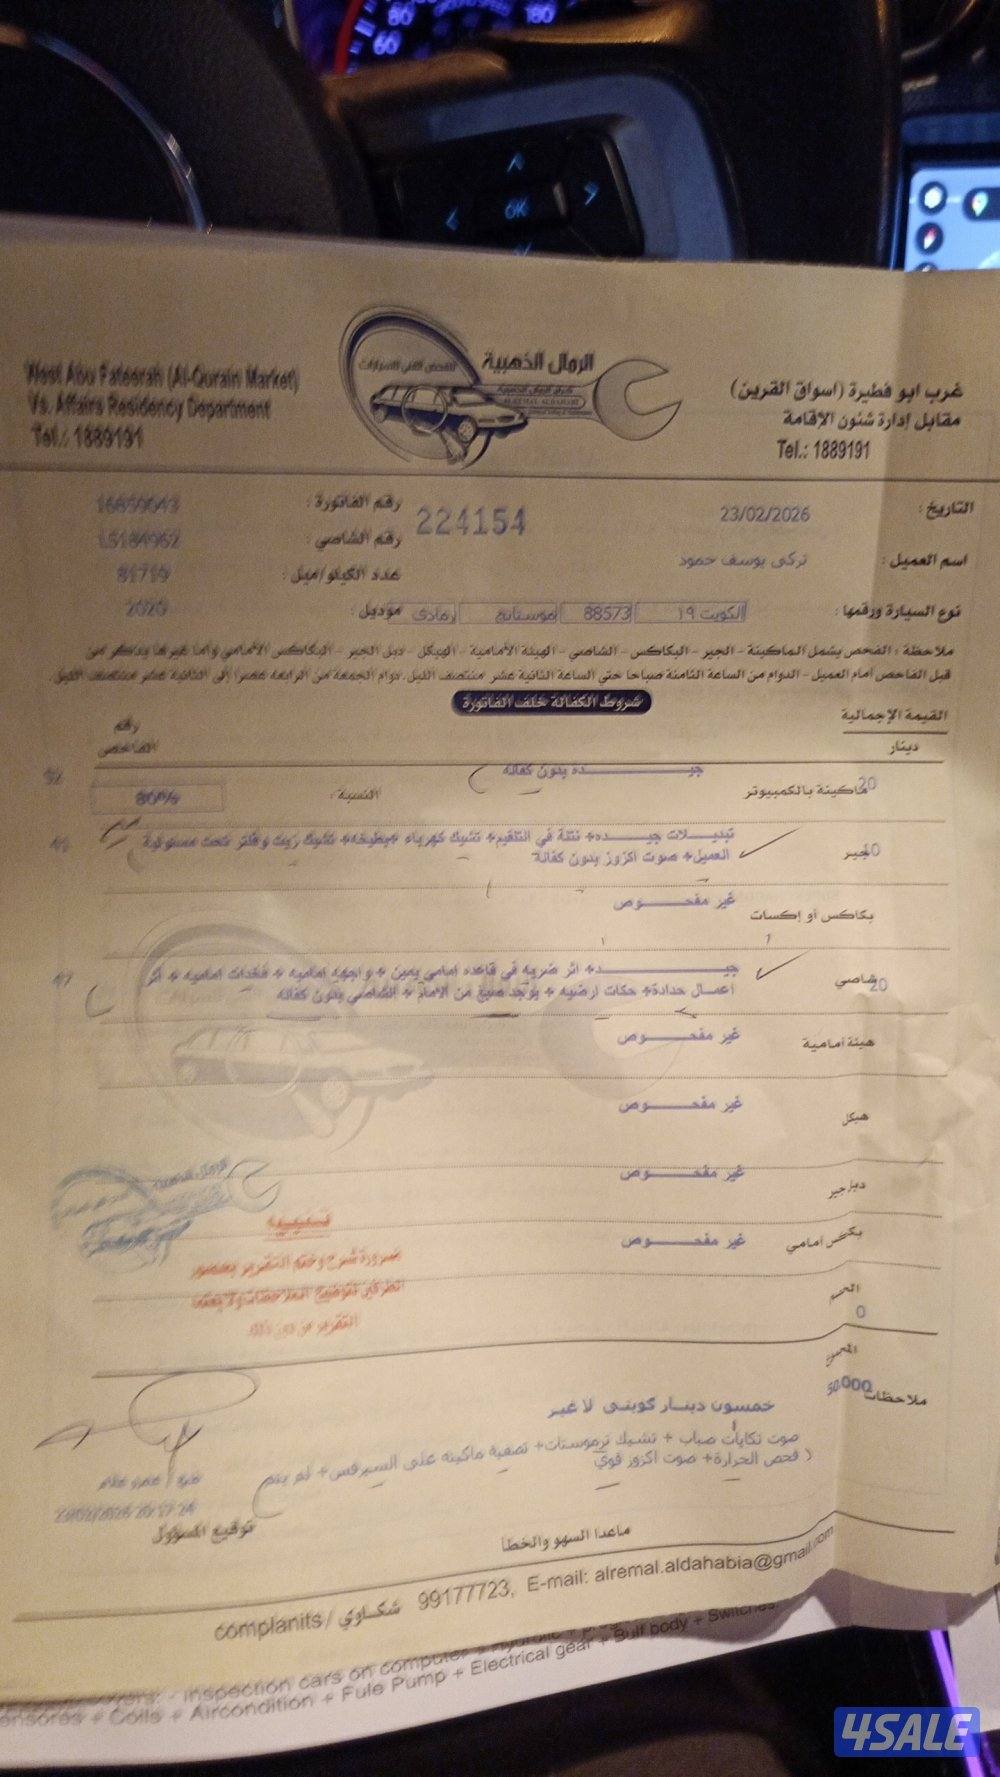 80
180
60
OK
الرمال الذهبية
للفحص الفني للسيارات
West Abu Fateerah (Al-Qurain Market)
Vs. Affairs Residency Department
Tel.: 1889191
غرب ابو فطيرة (اسواق القرين)
مقابل إدارة شئون الإقامة
Tel.: 1889191
التاريخ : 23/02/2026
224154
رقم الفاتورة :
رقم الشاصي :
اسم العميل : تركي يوسف حمود
عدد الكيلو/ميل : 81719
نوع السيارة ورقمها : الكويت ١٩ 88573 موستانج رمادي
موديل : 2020
ملاحظة : الفحص يشمل الماكينة - الجير - البكاكس - الشاصي - الهيئة الأمامية - الهيكل - دبل الجير - البكاكس الأمامي وأما غيرها يذكر من
قبل الفاحص أمام العميل - الدوام من الساعة الثامنة صباحا حتى الساعة الثانية عشر منتصف الليل. دوام الجمعة من الرابعة عصرا إلى الثانية عشر منتصف الليل.
شروط الكفالة خلف الفاتورة
القيمة الإجمالية
دينار
رقم
الفاحص
20 ماكينة بالكمبيوتر
جيـــــده بدون كفالة
النسبة : 80%
جير
تبديـلات جيـده+ نتلة في التلقيم+ تشيك كهرباء +بطيخه+ تشيك زيت وفلتر تحت مسئولية
العميل+ صوت اكزوز بدون كفالة
بكاكس أو إكسات
غير مفحــوص
20 شاصي
جيـــــد+ اثر ضربه في قاعده امامي يمين + واجهه اماميه + فخذات اماميه + اثر
اعمال حدادة+ حكات ارضيه + يوجد صبغ من الامام + الشاصي بدون كفالة
47
هيئة أمامية
غير مفحــوص
هيكل
غير مفحــوص
دبل جير
غير مفحــوص
بكس أمامي
غير مفحــوص
الرمال الذهبية
تنبيه
ضرورة شرح وختم التقرير بحضور
التقرير من دون ذلك
0
50.000
ملاحظات
خمسون دينار كويتي لا غير
صوت تكايات صباب + تشيك ترموستات+ تصفية ماكينه على السيرفس+ لم يتم
فحص الحرارة+ صوت اكزوز قوي
توقيع المسؤول
ماعدا السهو والخطأ
complanits / شكاوي 99177723, E-mail: alremal.aldahabia@gmail.com
inspection cars on computer
+ Coils + Aircondition + Fule Pump + Electrical gear + Bulf body + Switches
4SALE